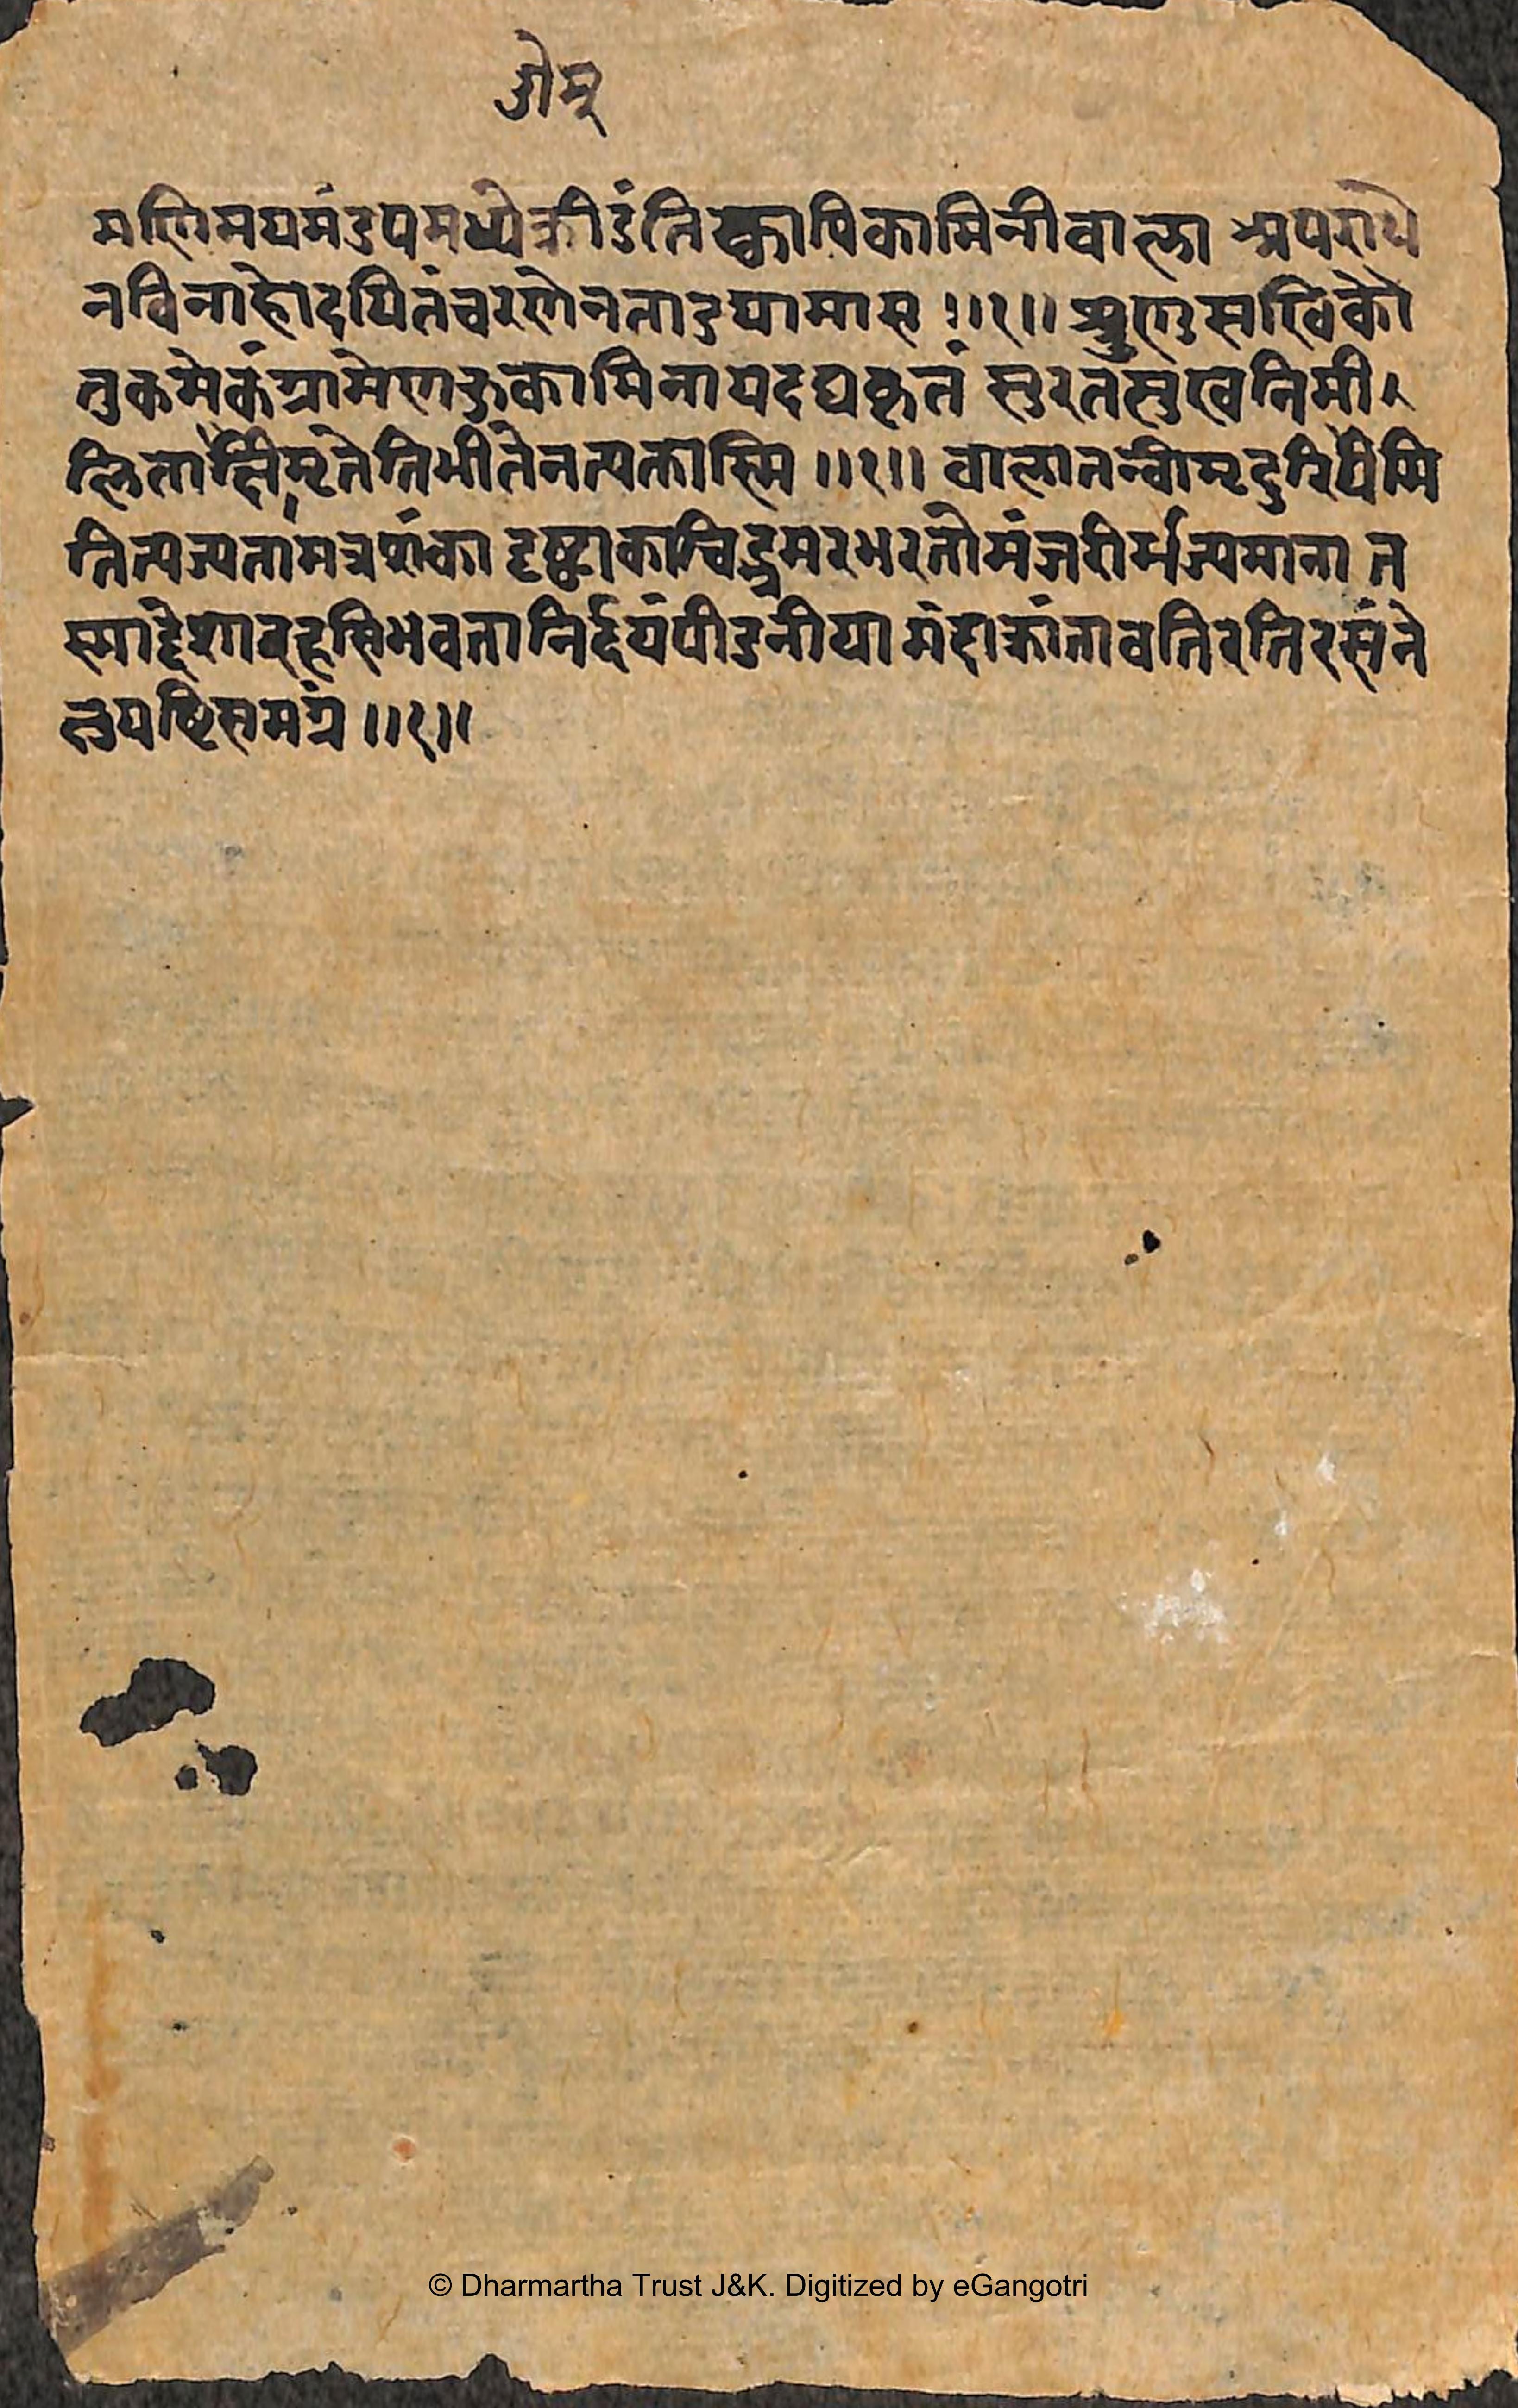 ओम्
मणिमयमंडपमध्येक्रीडंतिस्कापिकामिनीवाला अपराधे
नविनाहोदयितंचरणेनताडयामास ॥१॥ श्रृणुसखिकौ
तुकमेकंग्रामेणकुकामिनायदद्यकृतं सुरतसुखनिमी
लिताक्षीमृतेतिभीतेनत्यक्तास्मि ॥१॥ वालातन्वीमृदुरियमि
तित्यज्यतामत्रशंका दृष्टाकाचिद्भ्रमरभरतोमंजरीर्भज्यमाना त
स्मादेशारहसिभवतानिर्दयंपीडनीया मंदाक्रांतावतिरतिरसंने
क्षुयष्टिसमग्रं ॥१॥
© Dharmartha Trust J&K. Digitized by eGangotri